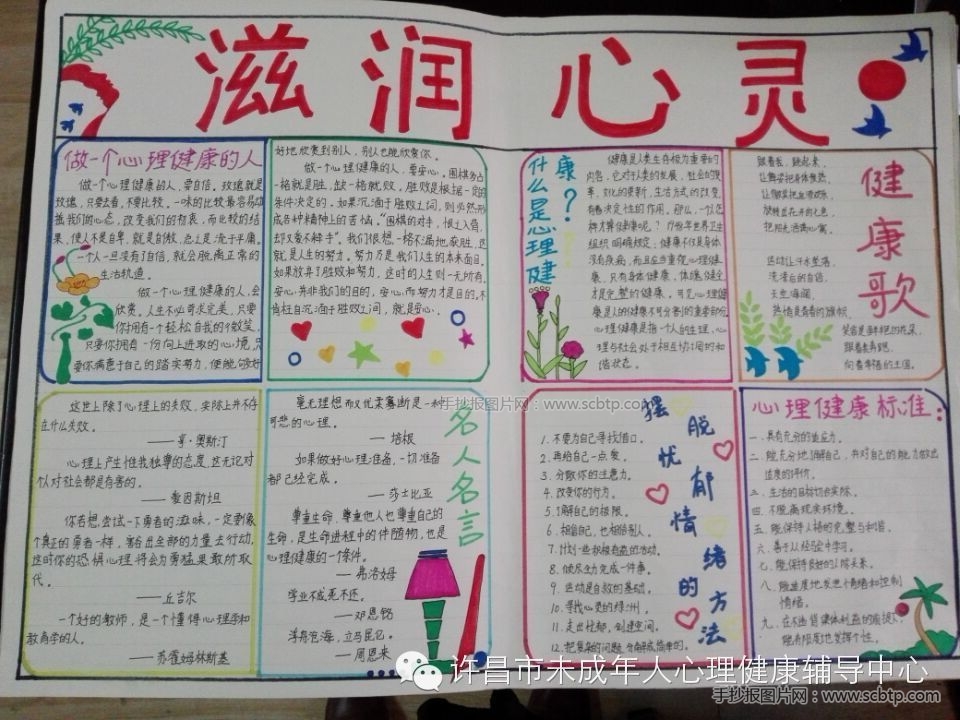 滋润心灵
做一个心理健康的人
做一个心理健康的人,要自信。玫瑰就是
玫瑰,只要去看,不要比较。一味的比较最容易动
摇我们的心态,改变我们的初衷,而比较的结
果,使人不是自卑,就是自傲,总之是流于平庸。
一个人一旦没有了自信,就会脱离正常的
生活轨道。
做一个心理健康的人,会
欣赏。人生不必苛求完美,只要
你拥有一个轻松自我的微笑,
只要你拥有一份向上进取的心境,只
要你满意于自己的踏实努力,便能够好
好地欣赏到别人,别人也能欣赏你。
做一个心理健康的人,要安心。围棋多占
一格就是胜,缺一格就败,胜败是根据一定的
条件决定的。如果沉湎于胜败之词,则必然形
成各种精神上的苦恼。“围棋的对手,恨之入骨,
却又难不解手”,我们很想一格不漏地获胜,这
就是人生的努力。努力乃是我们人生的本来面目。
如果放弃了胜败和努力,这时的人生则一无所有。
安心,并非我们的目的,安心,而努力才是目的,不
肯枉自沉湎于胜败之间,就是安心。
什么是心理健康?
健康是人类生存极为重要的
内容,它对于人类的发展,社会的变
革,文化的更新,生活方式的改变,
有着决定性的作用。那么,一个怎
样才算健康呢?1978年世界卫生
组织明确规定:健康不仅是身体
没有疾病,而且应当重视心理健
康,只有身体健康、体魄健全
才是完整的健康。可见心理健
康是人的健康不可分割的重要部分。
心理健康是指一个人的生理、心
理与社会处于相互协调的和
谐状态。
健康歌
跟着我,跳起来,
让舞姿把身体焕热
旋转盛开的七色
把阳光洒满心窝。
运动让汗水坠落,
洗涤后的自信,
天空海阔,
热情是青春的旗帜,
笑容是鲜艳的花朵,
跟着我奔跑,
向着幸福的王国。
这世上除了心理上的失败,实际上并不存
在什么失败。
——亨·奥斯汀
心理上产生惟我独尊的态度,这无论对
个人对社会都是有害的。
——爱因斯坦
你若想尝试一下勇者的滋味,一定要像
个真正的勇者一样,豁出全部的力量去行动,
这时你的恐惧心理将会为勇猛果敢所取
代。
——丘吉尔
一个好的教师,是一个懂得心理学和
教育学的人。
——苏霍姆林斯基
名人名言
毫无理想而又优柔寡断是一种
可悲的心理。
——培根
如果做好心理准备,一切准备
都已经完成。
——莎士比亚
尊重生命、尊重他人也尊重自己的
生命,是生命进程中的伴随物,也是
心理健康的一个条件。
——弗洛姆
学业不成死不还。
——邓恩铭
浮舟沧海,立马昆仑。
——周恩来
摆脱忧郁情绪的方法
1.不要为自己寻找借口。
2.再给自己一点爱。
3.分散你的注意力。
4.改变你的行为。
5.了解自己的极限。
6.相信自己,也相信别人。
7.计划一些积极有益的活动。
8.倾尽全力完成一件事。
9.运动是自救的基础。
10.寻找心灵的绿洲。
11.走出忧郁,创建空间。
12.把复杂的问题分解成简单的。
心理健康标准:
一.具有充分的适应力。
二.能充分地了解自己,并对自己的能力做出
适度的评价。
三.生活的目标切合实际。
四.不脱离现实环境。
五.能保持人格的完整与和谐。
六.善于从经验中学习。
七.能保持良好的人际关系。
八.能适度地发泄情绪和控制
情绪。
九.在不违背集体利益的前提下,
能有限度地发挥个性。
手抄报图片网:www.scbtp.com
许昌市未成年人心理健康辅导中心
手抄报图片网:www.scbtp.com